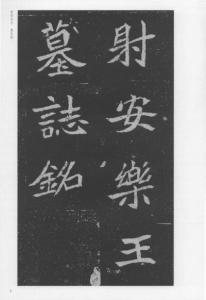 射安樂王
墓誌銘